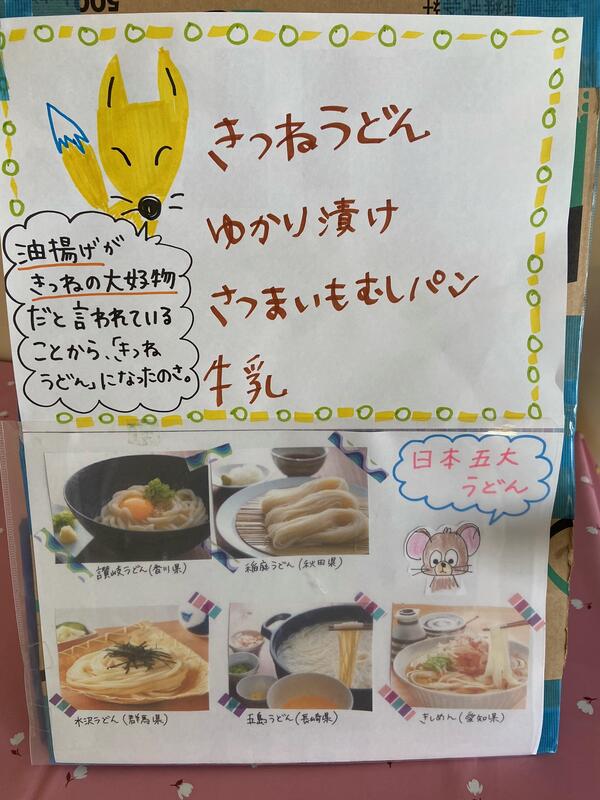 500
きつねうどん
ゆかり漬け
さつまいもむしパン
牛乳
油揚げが
きつねの大好物
だと言われている
ことから、「きつね
うどん」になったのさ。
日本五大
うどん
讃岐うどん(香川県)
稲庭うどん(秋田県)
水沢うどん(群馬県)
五島うどん(長崎県)
きしめん(愛知県)